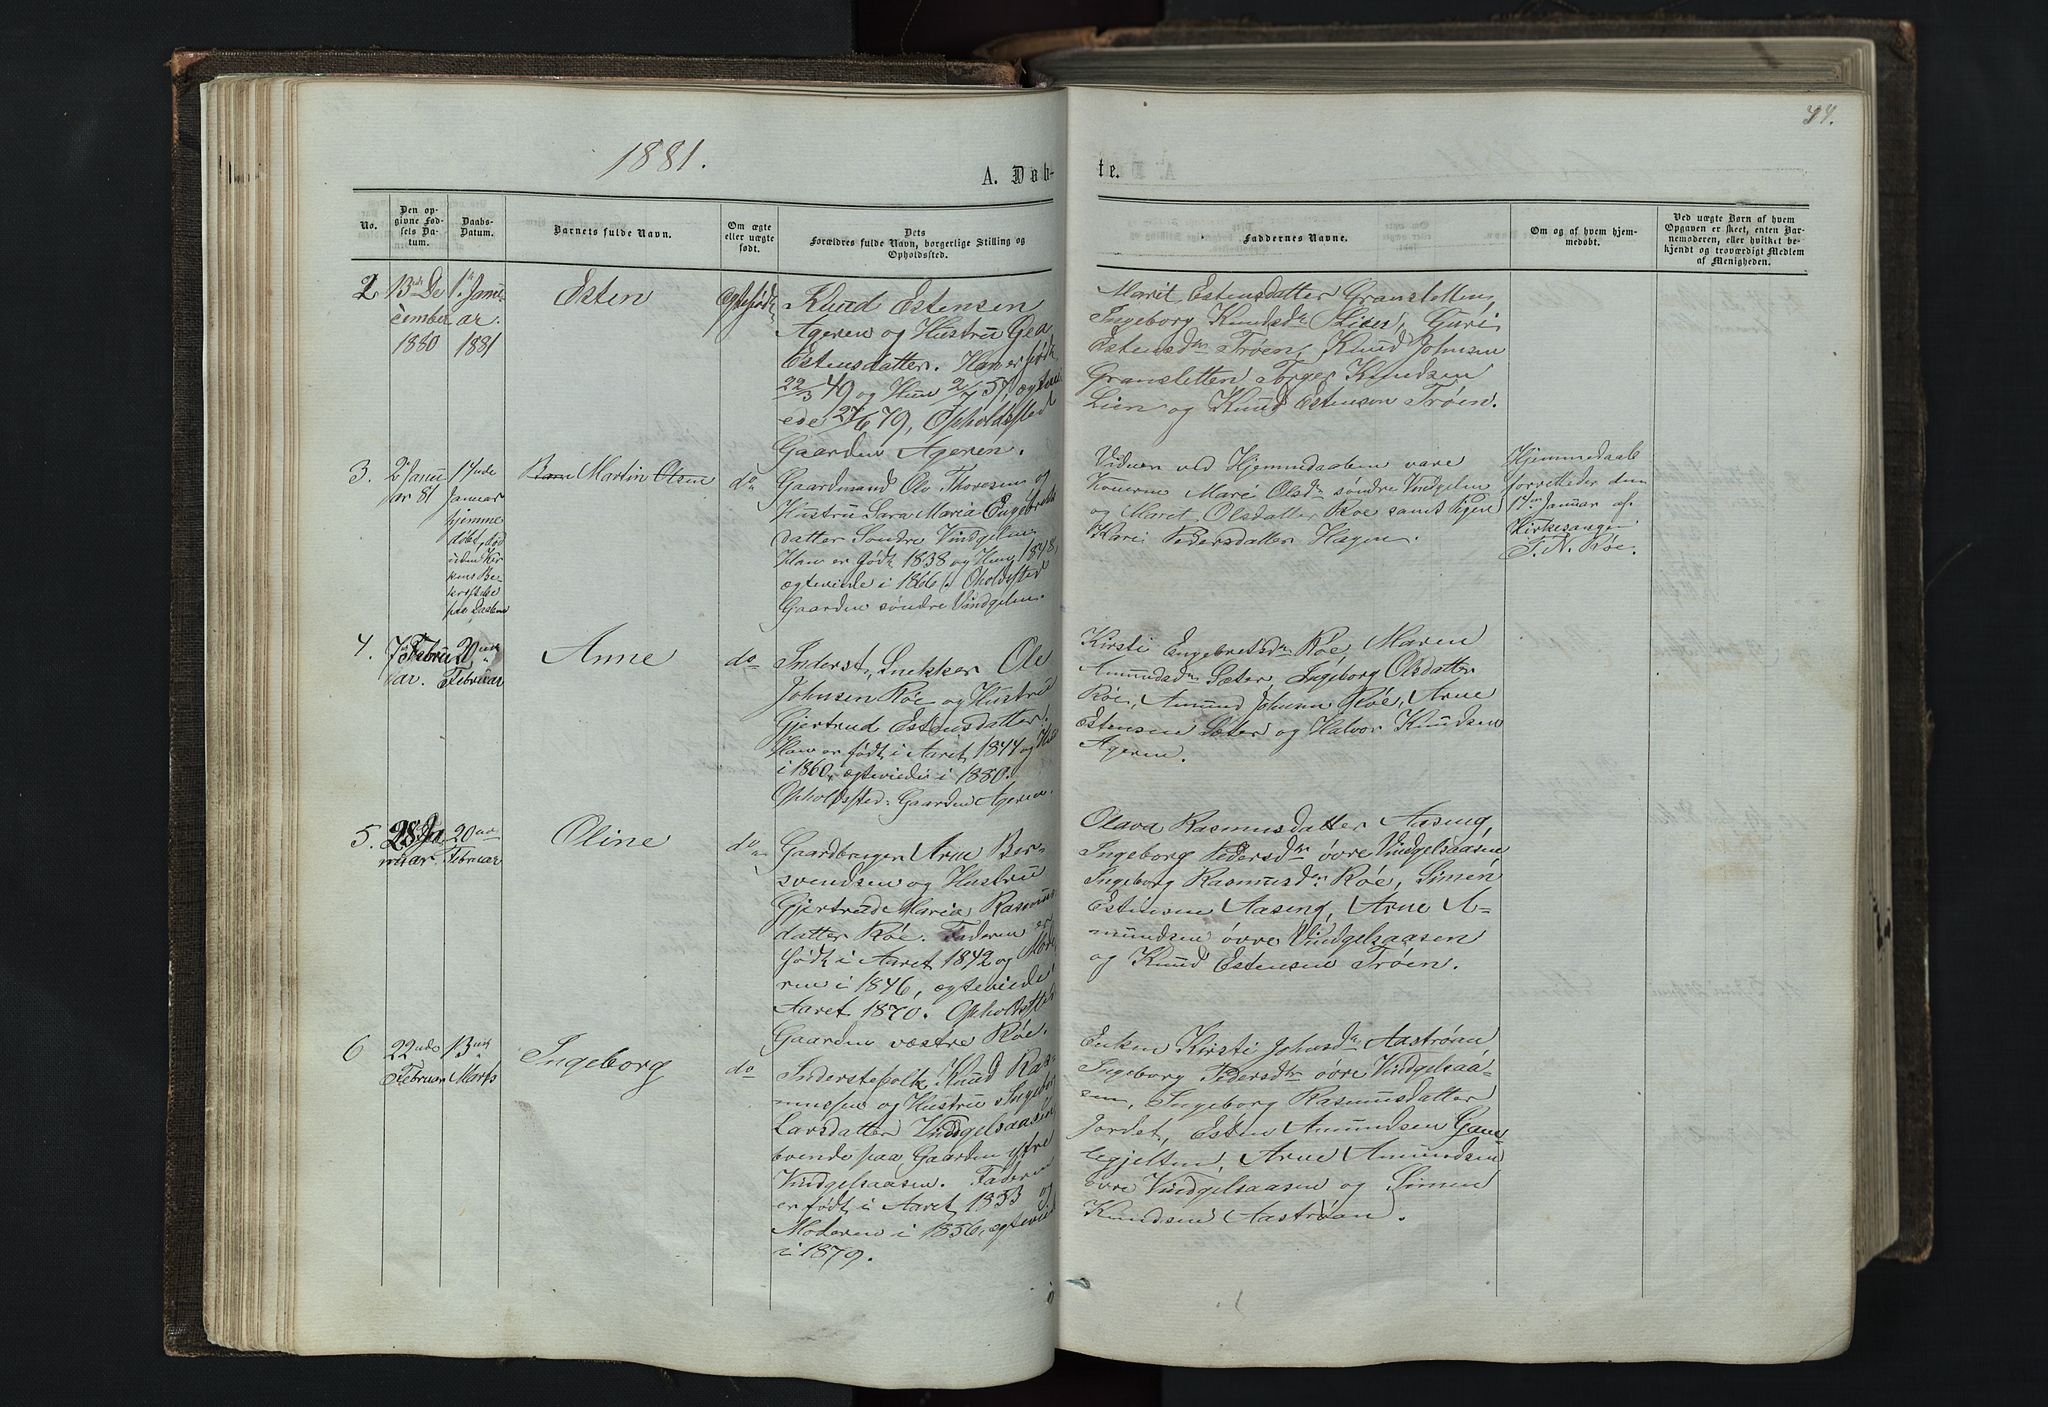 44.
1881.
A. Døb-
te.
No.
Den op-
givne Fød-
sels Da-
tum.
Daabs-
Datum.
Barnets fulde Navn.
Om ægte
eller uægte
født.
Dets
Forældres fulde Navn, borgerlige Stilling og
Opholdssted.
Faddernes Navne.
Om og af hvem hjem-
medøbt.
Ved uægte Børn af hvem
Opgaven er skeet, enten Bar-
nemoderen, eller hvilket be-
kjendt og troværdigt Medlem
af Menigheden.
2.
13de De
cember
1880
1ste Janu-
ar.
1881
Esten
Ægtefødt
Knud Estensen
Ageren og Hustru Gea
Estensdatter. Han er født
22/3 49 og Hun 2/7 57, ægtevi
ede 27/6 79, Opholdssted
Gaarden Ageren.
Marit Estensdatter Gransletten,
Ingeborg Knudsdr Lien, Guri
Estensdr Trøen, Knud Johnsen
Gransletten, Torger Knudsen
Lien og Knud Estensen Trøen.
3.
2den Janu
ar 81
14nde
Januar
hjemme
døbt, død
uden Kir
kens Be-
kræftelse
paa Daaben
Barn Martin Olsen
do
Gaardmand Ole Thoresen og
Hustru Sara Maria Engebrets
datter Søndre Vindgelen.
Han er født 1838 og Hun 1848,
ægteviede i 1866. Opholdssted
Gaarden søndre Vindgelen.
Vidner ved Hjemmedaaben vare
Konerne Mari Olsdr søndre Vindgelen
og Maret Olsdatter Røe samt Pigen
Kari Pedersdatter Hagen.
Hjemmedaab
forrettedes den
14de Januar af
Kirkesanger
T. N. Røe.
4.
7de Febru
ar.
20nde
Februar
Anne
do
Inderst, Snekker Ole
Johnsen Røe og Hustru
Gjertrud Estensdatter.
Han er født i Aaret 1844 og Hun
i 1860, ægteviede i 1880.
Opholdssted: Gaarden Ageren.
Kirsti Engebretsdr Røe, Maren
Amundsdr Sæter, Ingeborg Olsdatter
Røe, Amund Johnsen Røe, Arne
Estensen Sæter og Halvor Knudsen
Ageren.
5.
28 Ja
nuar
20nde
Februar
Oline
do
Gaardbruger Arne Ber-
svendsen og Hustru
Gjertrude Maria Rasmus-
datter Røe. Faderen er
født i Aaret 1842 og Mode
ren i 1846, ægteviede
Aaret 1870. Opholdssted
Gaarden væstre Røe.
Olava Rasmusdatter Aasing,
Ingeborg Pedersdr øvre Vindgelsaasen
Ingeborg Rasmusdr Røe, Simen
Estensen Aasing, Arne A-
mundsen øvre Vindgelsaasen
og Knud Estensen Trøen.
6
22nde
Februar
13nde
Marts
Ingeborg
do
Inderstefolk Knud Ras-
mussen og Hustru Ingeborg
Larsdatter Vindgelsaasen
boende paa Gaarden øfre
Vindgelsaasen. Faderen
er født i Aaret 1853 og
Moderen i 1856, ægteviede
i 1879.
Enken Kirsti Johnsdr Aastrøen
Ingeborg Pedersdtr øvre Vindgelsaa-
sen, Ingeborg Rasmusdatter
Jordet, Esten Amundsen Gam-
melgjelten, Arne Amundsen
øvre Vindgelsaasen og Simen
Knudsen Aastrøen.